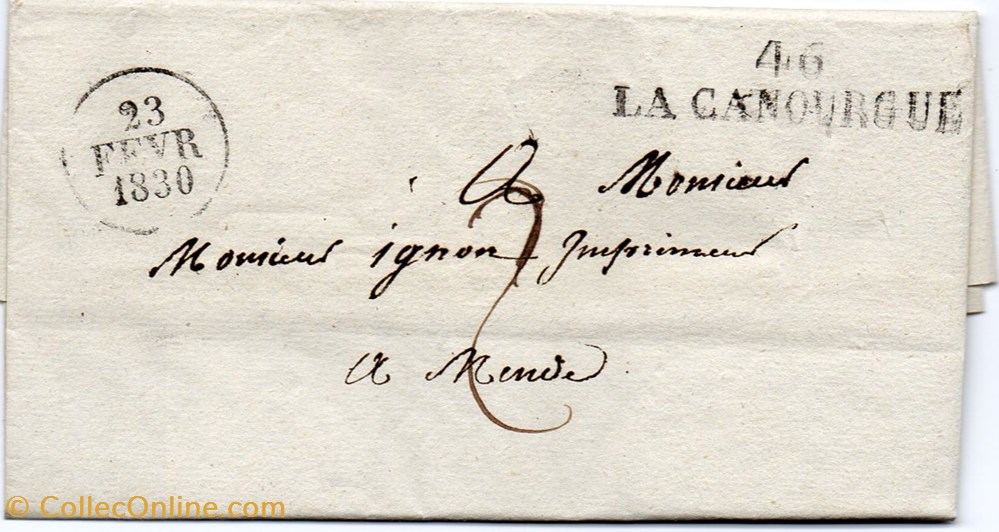 46
LA CANOURGUE
23
FEVR
1830
A Monsieur
Monsieur ignon Imprimeur
2
a Mende
© CollecOnline.com